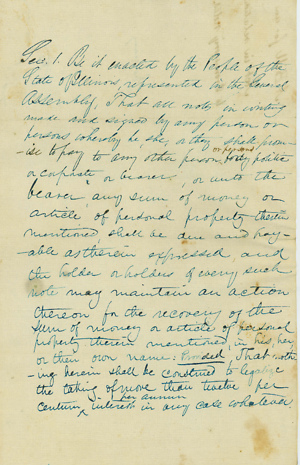 Sec. 1. Be it enacted by the People of the
State of Illinois, represented in the General
Assembly, That all notes in writing
made and signed by any person or
persons whereby he, she, or they shall prom-
-ise to pay to any other person or persons body politic
or corporate, or bearer, or unto the
bearer, any sum of money or
article of personal property therein
mentioned, shall be due and pay-
-able as therein expressed, and
the holder or holders of every such
note may maintain an action
thereon for the recovery of the
sum of money or article of personal
property therein mentioned, in his, her,
or their own name: Provided, That noth-
-ing herein shall be construed to legalize
the taking of more than twelve per
centum per annum interest in any case whatever.